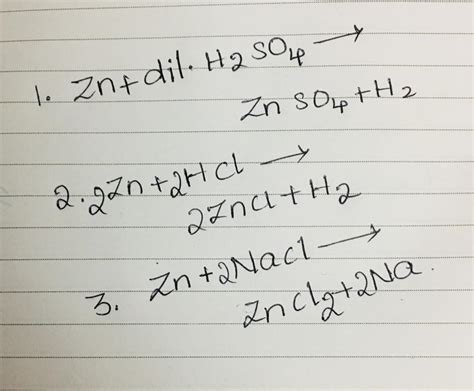 1. Zn + dil. H2SO4 →
ZnSO4 + H2
2. 2Zn + 2HCl →
2ZnCl + H2
3. Zn + 2NaCl →
ZnCl2 + 2Na.